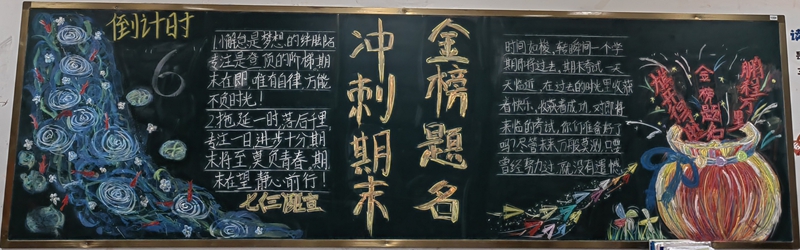 倒计时
6
1.懈怠是梦想的绊脚石
专注是登顶的阶梯期
末在即,唯有自律,方能
不负时光!
2.拖延一时,落后千里,
专注一日,进步十分,期
末将至,莫负青春,期
末在望,静心前行!
七仁配宣
冲刺期末
金榜题名
时间如梭,转瞬间一个学
期即将过去,期末考试一天
天临近,在过去的时光里收获
着快乐、收获着成功,对即将
来临的考试,你们准备好了
吗?尽管未来万般莫测,只要
曾经努力过,就没有遗憾
金榜题名
鹏程万里